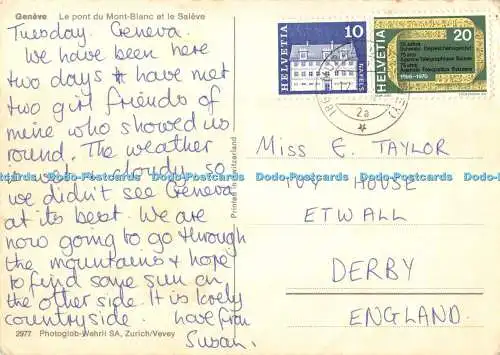 Genève Le pont du Mont-Blanc et le Salève
Tuesday. Geneva.
We have been here
two days & have met
two girl friends of
mine who showed us
round. The weather
cloudy so
we didn't see Geneva
at its best. We are
now going to go through
the mountains & hope
to find some sun on
the other side. It is lovely
countryside. have fun
Susan.
2977 Photoglob-Wehrli SA, Zurich/Vevey
Printed in Switzerland
HELVETIA
10
NAFELS
HELVETIA
20
75 Jahre
1895-1970
2a
Miss E. TAYLOR
IVY HOUSE
ETWALL
DERBY
ENGLAND.
Dodo-Postcards Dodo-Postcards Dodo-Postcards Dodo-Postcards
Dodo-Postcards Dodo-Postcards Dodo-Postcards Dodo-Postcards